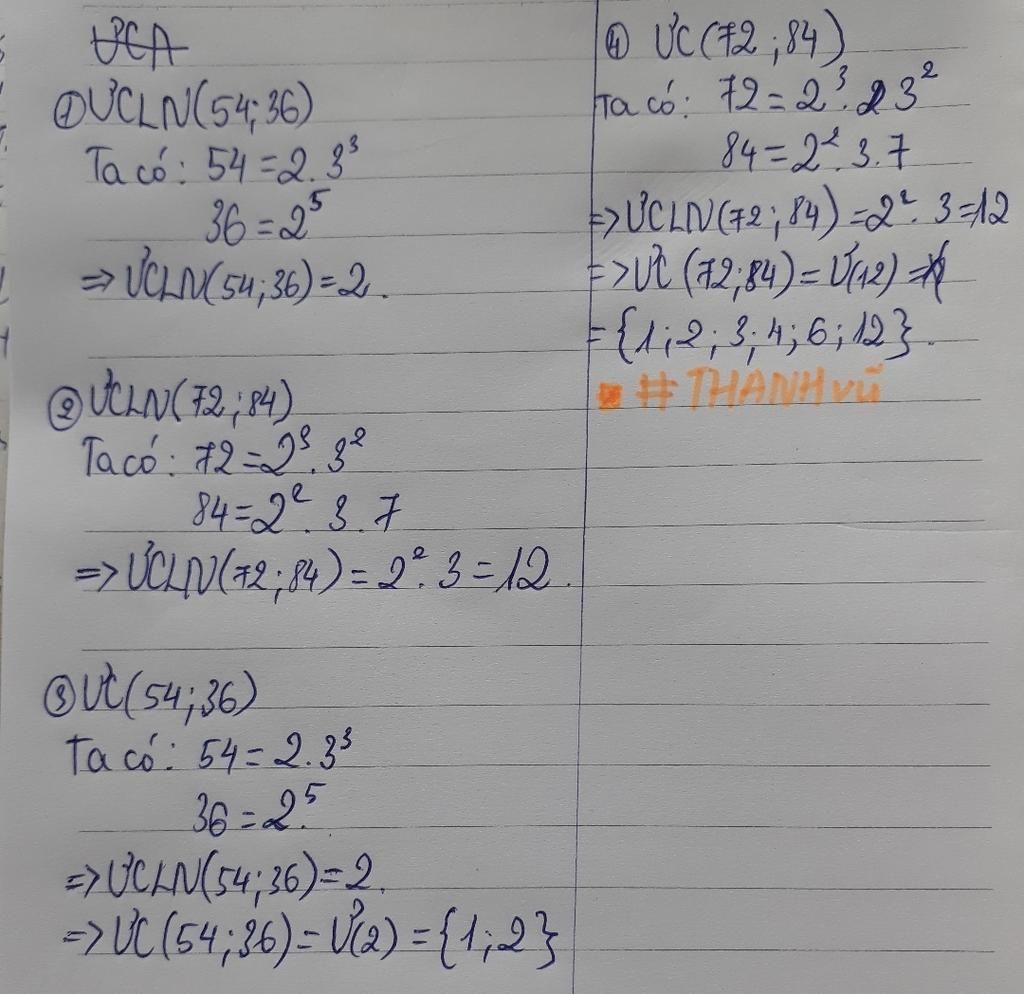 ƯCA
① ƯCLN(54;36)
Ta có: 54 = 2.3³
36 = 2⁵
=> ƯCLN(54;36) = 2.
② ƯCLN(72;84)
Ta có: 72 = 2³.3²
84 = 2².3.7
=> ƯCLN(72;84) = 2².3 = 12.
③ ƯC(54;36)
Ta có: 54 = 2.3³
36 = 2⁵.
=> ƯCLN(54;36) = 2.
=> ƯC(54;36) = Ư(2) = {1;2}
④ ƯC(72;84)
Ta có: 72 = 2³.3²
84 = 2².3.7
=> ƯCLN(72;84) = 2².3 = 12
=> ƯC(72;84) = Ư(12) =
= {1;2;3;4;6;12}.
#THANHVũ